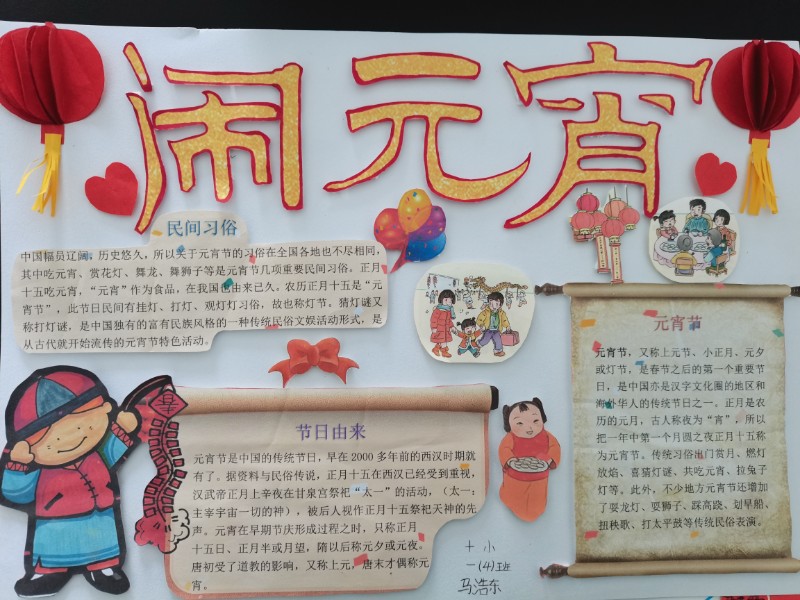 闹元宵
民间习俗
中国幅员辽阔，历史悠久，所以关于元宵节的习俗在全国各地也不尽相同，
其中吃元宵、赏花灯、舞龙、舞狮子等是元宵节几项重要民间习俗。正月
十五吃元宵，“元宵”作为食品，在我国也由来已久。农历正月十五是“元
宵节”，此节日民间有挂灯、打灯、观灯灯习俗，故也称灯节。猜灯谜又
称打灯谜，是中国独有的富有民族风格的一种传统民俗文娱活动形式，是
从古代就开始流传的元宵节特色活动。
元宵节
元宵节，又称上元节、小正月、元夕
或灯节，是春节之后的第一个重要节
日，是中国亦是汉字文化圈的地区和
海外华人的传统节日之一。正月是农
历的元月，古人称夜为“宵”，所以
把一年中第一个月圆之夜正月十五称
为元宵节。传统习俗出门赏月、燃灯
放焰、喜猜灯谜、共吃元宵、拉兔子
灯等。此外，不少地方元宵节还增加
了耍龙灯、耍狮子、踩高跷、划旱船、
扭秧歌、打太平鼓等传统民俗表演。
节日由来
元宵节是中国的传统节日，早在 2000 多年前的西汉时期就
有了。据资料与民俗传说，正月十五在西汉已经受到重视，
汉武帝正月上辛夜在甘泉宫祭祀“太一”的活动，（太一：
主宰宇宙一切的神），被后人视作正月十五祭祀天神的先
声。元宵在早期节庆形成过程之时，只称正月
十五日、正月半或月望，隋以后称元夕或元夜。
唐初受了道教的影响，又称上元，唐末才偶称元
宵。
十小
一(4)班
马浩东